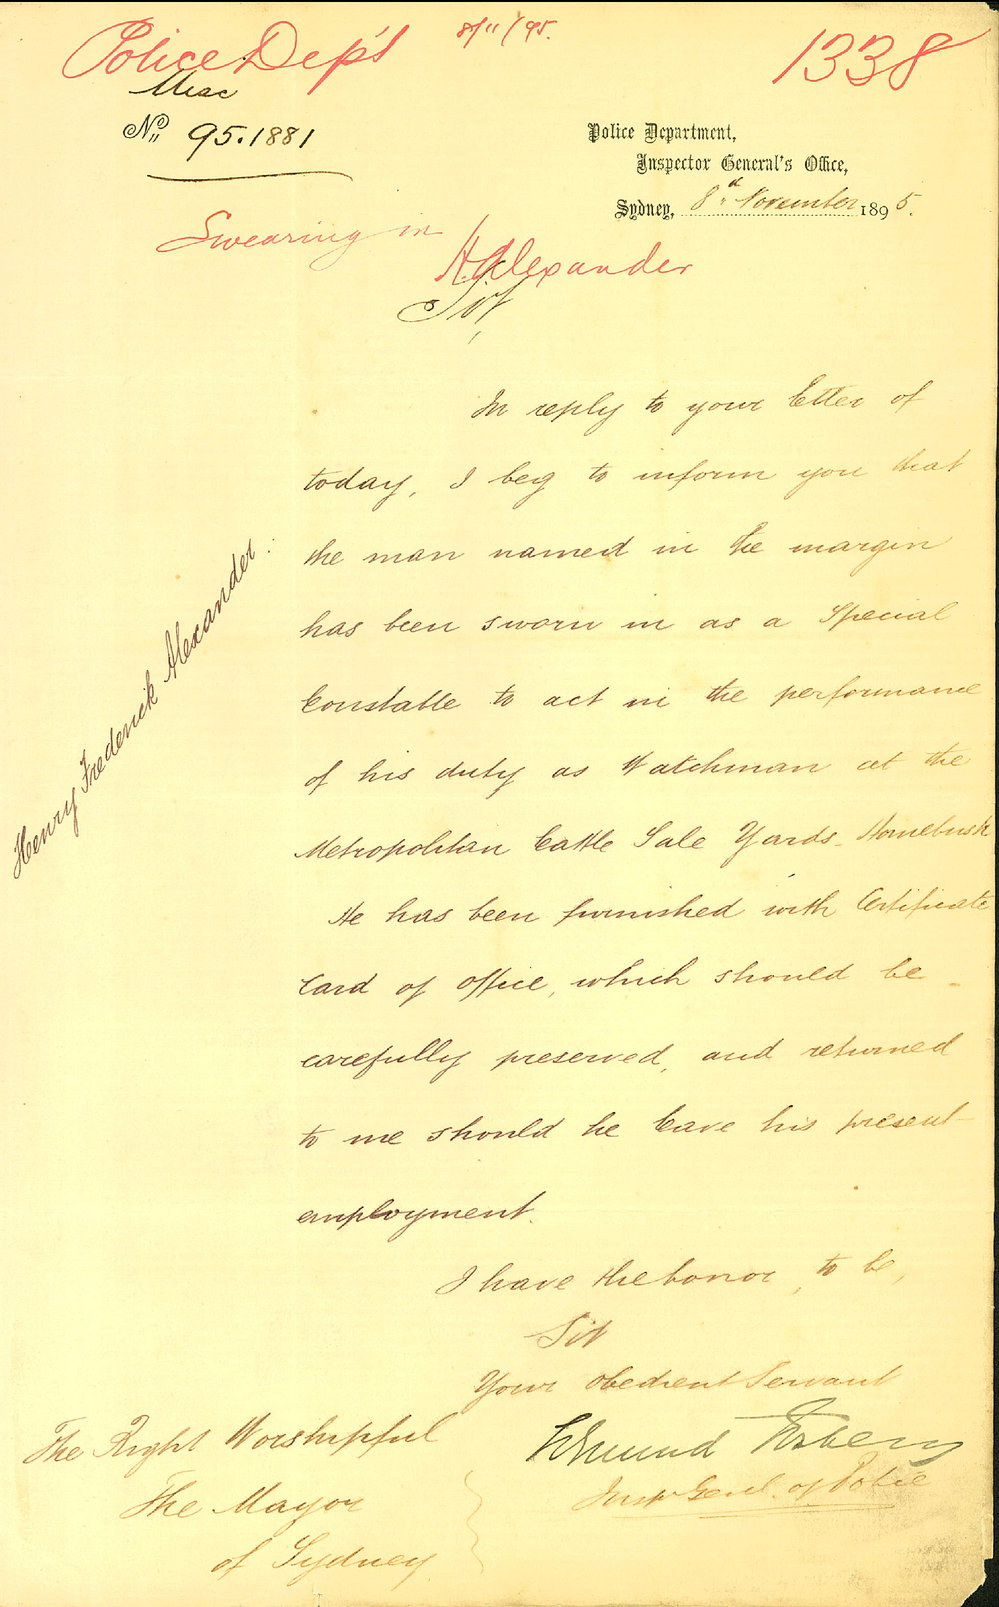 Police Dep't
8/11/95.
1338
Misc
No 95.1881
Police Department,
Inspector General's Office,
Sydney, 8th November 1895.
Swearing in
H. Alexander
Sir,
In reply to your letter of
today, I beg to inform you that
the man named in the margin
has been sworn in as a Special
Constable to act in the performance
of his duty as Watchman at the
Metropolitan Cattle Sale Yards. Homebush
Henry Frederick Alexander.
He has been furnished with Certificate
Card of office, which should be
carefully preserved, and returned
to me should he leave his present
employment.
I have the honor, to be,
Sir
Your obedient Servant
Edmund Fosbery
Insp Genl. of Police
The Right Worshipful
The Mayor
of Sydney